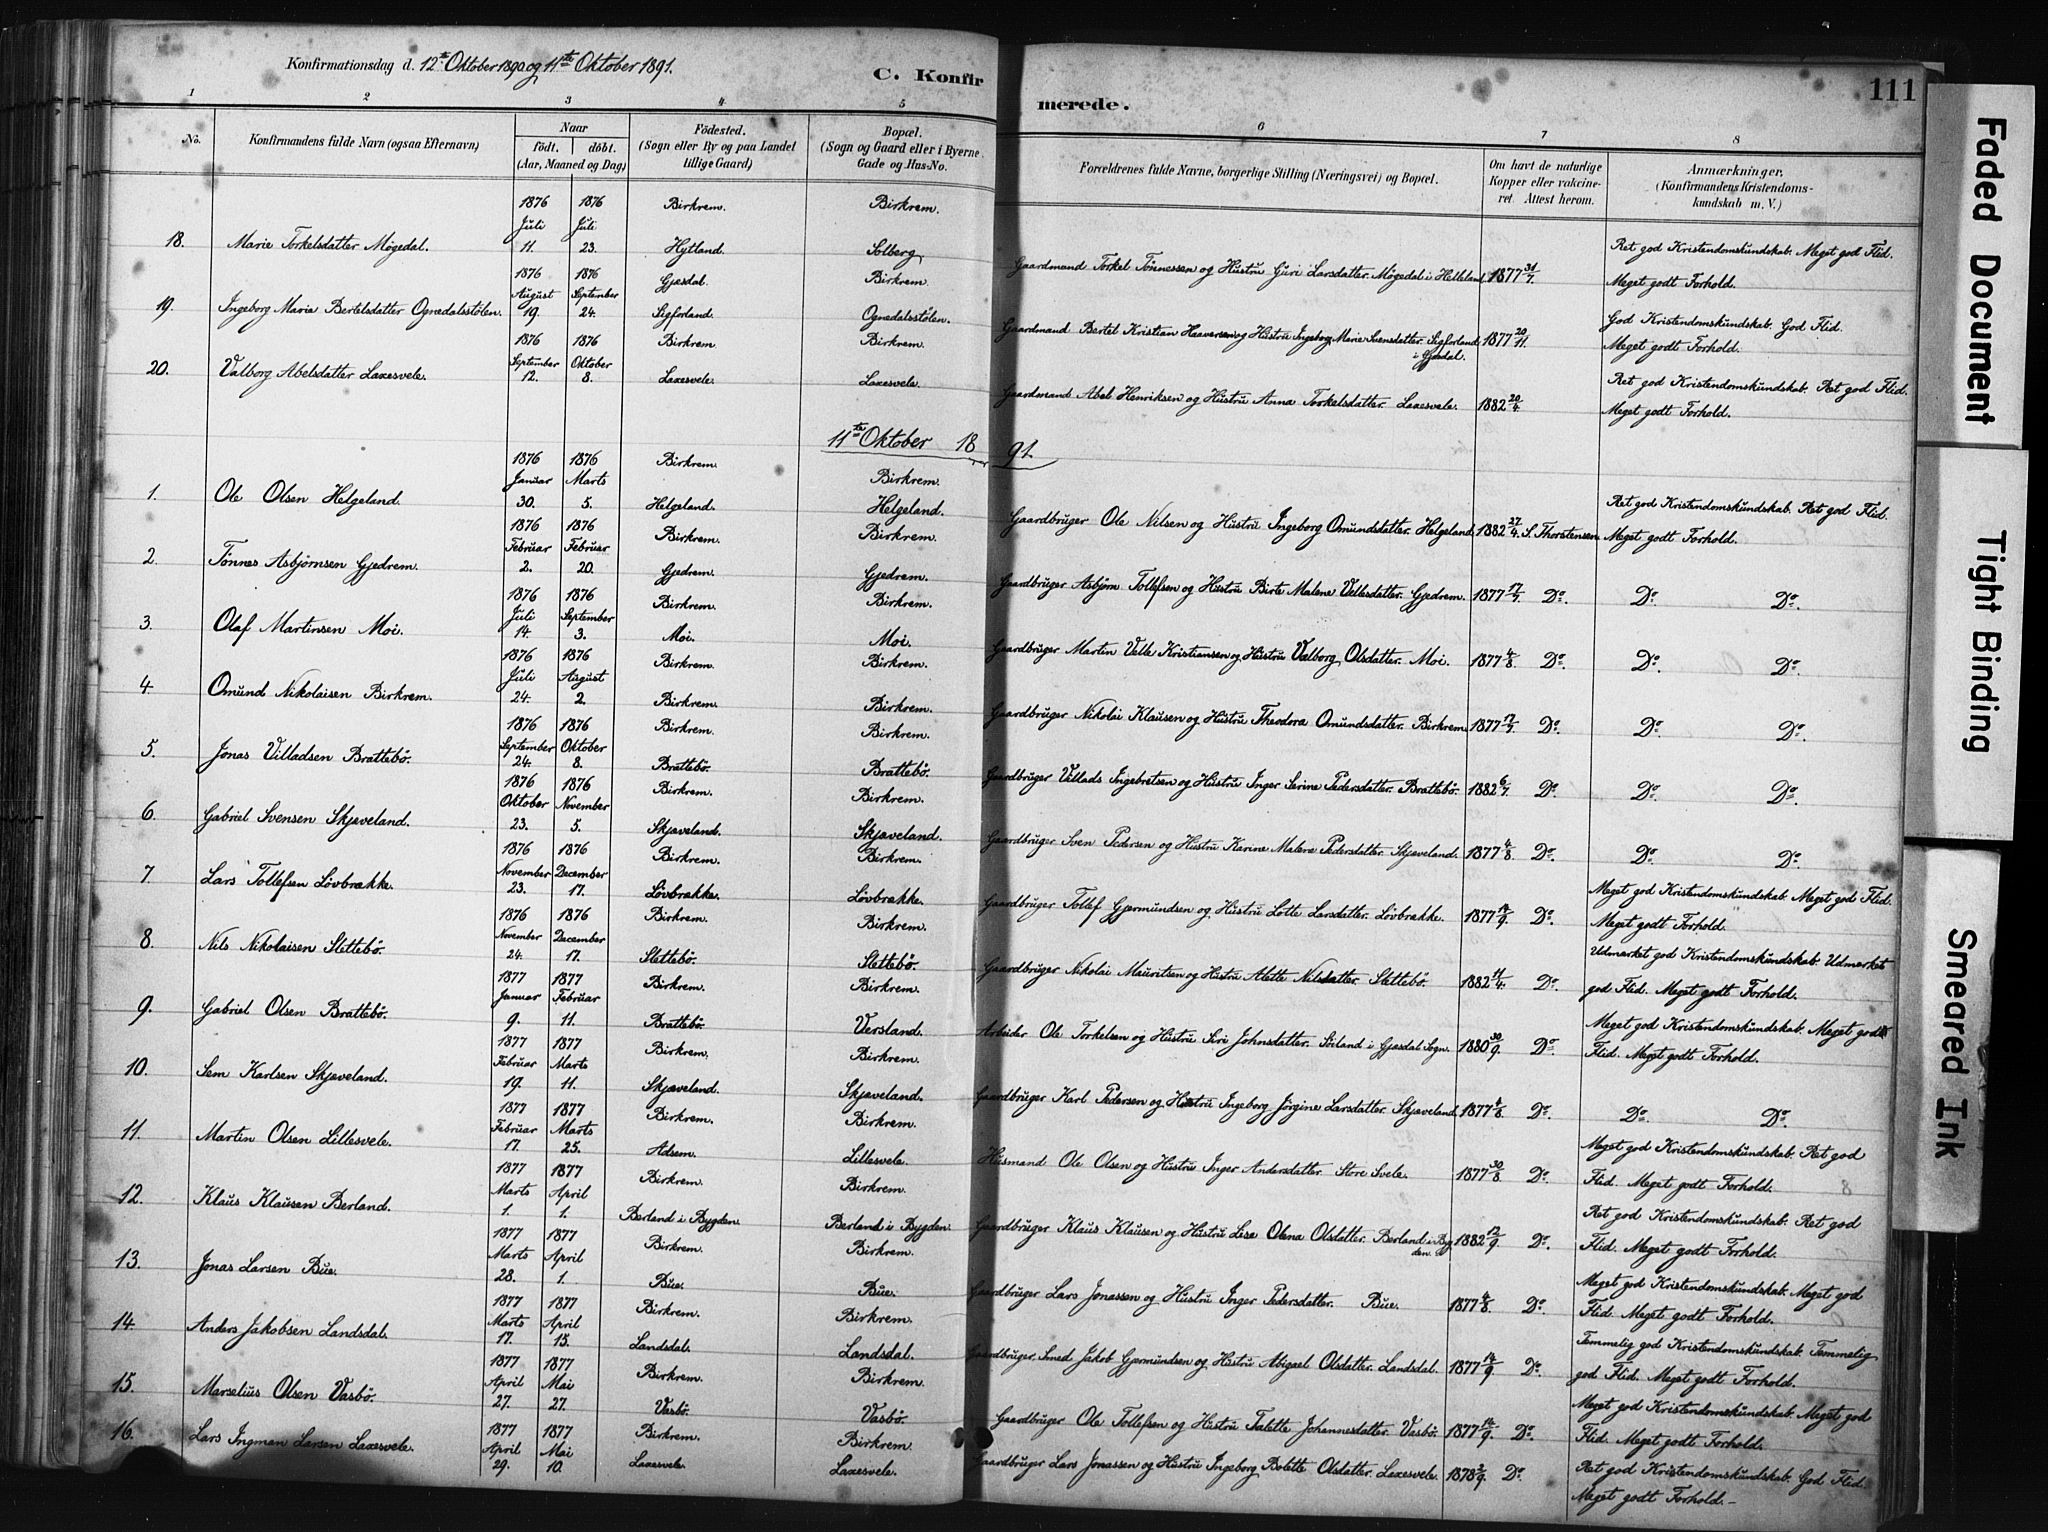 Konfirmationsdag d. 12te Oktober 1890 og 11te Oktober 1891.
C. Konfirmerede.
111
1 2 3 4 5 6 7 8
No.
Konfirmandens fulde Navn (ogsaa Efternavn)
Naar
födt. döbt.
(Aar, Maaned og Dag)
Födested.
(Sogn eller By og paa Landet
tillige Gaard)
Bopæl.
(Sogn og Gaard eller i Byerne
Gade og Hus-No.
Forældrenes fulde Navne, borgerlige Stilling (Næringsvei) og Bopæl.
Om havt de naturlige
Kopper eller vakcine-
ret. Attest herom.
Anmærkninger,
(Konfirmandens Kristendoms-
kundskab m. V.)
18. Marie Torkelsdatter Møgedal. 1876 Juli 11. 1876 Juli 23. Birkrem. Hytland. Birkrem. Solberg. Gaardmand Torkel Tønnessen og Hustru Guri Larsdatter. Møgedal i Helleland. 1877 31/7. Ret god Kristendomskundskab. Meget god Flid.
Meget godt Forhold.
19. Ingeborg Maria Bertelsdatter Ognedalsstölen. 1876 August 19. 1876 September 24. Gjesdal. Sigforland. Birkrem. Ognedalsstölen. Gaardmand Bertel Kristian Haaversen og Hustru Ingeborg Marie Svensdatter. Sigforland i Gjesdal. 1877 20/11. God Kristendomskundskab. God Flid.
Meget godt Forhold.
20. Valborg Abelsdatter Laxesvele. 1876 September 12. 1876 Oktober 8. Birkrem. Laxesvele. Birkrem. Laxesvele. Gaardmand Abel Henriksen og Hustru Anna Torkelsdatter. Laxesvele. 1882 20/4. Ret god Kristendomskundskab. Ret god Flid.
Meget godt Forhold.
11te Oktober 1891.
1. Ole Olsen Helgeland. 1876 Januar 30. 1876 Marts 5. Birkrem. Helgeland. Birkrem. Helgeland. Gaardbruger Ole Nilsen og Hustru Ingeborg Omundsdatter. Helgeland. 1882 27/4. S. Thorstensen. Ret god Kristendomskundskab. Ret god Flid.
Meget godt Forhold.
2. Tønnes Asbjørnsen Gjedrem. 1876 Februar 2. 1876 Februar 20. Birkrem. Gjedrem. Birkrem. Gjedrem. Gaardbruger Asbjørn Tollefsen og Hustru Birte Malene Vellesdatter. Gjedrem. 1877 17/7. Do. Do. Do.
3. Olaf Martinsen Moi. 1876 Juli 14. 1876 September 3. Birkrem. Moi. Birkrem. Moi. Gaardbruger Martin Velle Kristiansen og Hustru Valborg Olsdatter. Moi. 1877 4/8. Do. Do. Do.
4. Omund Nikolaisen Birkrem. 1876 Juli 24. 1876 August 2. Birkrem. Birkrem. Birkrem. Birkrem. Gaardbruger Nikolai Klausen og Hustru Theodora Omundsdatter. Birkrem. 1877 17/7. Do. Do. Do.
5. Jonas Villadsen Brattebö. 1876 September 24. 1876 Oktober 8. Birkrem. Brattebö. Birkrem. Brattebö. Gaardbruger Villads Ingebretsen og Hustru Inger Serine Pedersdatter. Brattebö. 1882 6/7. Do. Do. Do.
6. Gabriel Svensen Skjæveland. 1876 Oktober 23. 1876 November 5. Birkrem. Skjæveland. Birkrem. Skjæveland. Gaardbruger Sven Pedersen og Hustru Karine Malene Pedersdatter. Skjæveland. 1877 4/8. Do. Do. Do.
7. Lars Tollefsen Lövbrække. 1876 November 23. 1876 December 17. Birkrem. Lövbrække. Birkrem. Lövbrække. Gaardbruger Tollef Gjermundsen og Hustru Lotte Larsdatter. Lövbrække. 1877 14/9. Do. Meget god Kristendomskundskab. Meget god Flid.
Meget godt Forhold.
8. Nils Nikolaisen Slettebö. 1876 November 24. 1876 December 17. Birkrem. Slettebö. Birkrem. Slettebö. Gaardbruger Nikolai Mauritsen og Hustru Alette Nilsdatter. Slettebö. 1882 11/4. Do. Udmærket god Kristendomskundskab. Udmærket
god Flid. Meget godt Forhold.
9. Gabriel Olsen Brattebö. 1877 Januar 9. 1877 Februar 11. Birkrem. Brattebö. Birkrem. Versland. Arbeider Ole Torkelsen og Hustru Siri Johnsdatter. Sörland i Gjesdal Sogn. 1880 30/9. Do. Meget god Kristendomskundskab. Meget god
Flid. Meget godt Forhold.
10. Sem Karlsen Skjæveland. 1877 Februar 19. 1877 Marts 11. Birkrem. Skjæveland. Birkrem. Skjæveland. Gaardbruger Karl Pedersen og Hustru Ingeborg Jörgine Larsdatter. Skjæveland. 1877 4/8. Do. Do. Do.
11. Martin Olsen Lillesvele. 1877 Februar 17. 1877 Marts 25. Birkrem. Adsem. Birkrem. Lillesvele. Husmand Ole Olsen og Hustru Inger Andersdatter. Store Svele. 1877 30/8. Do. Meget god Kristendomskundskab. Ret god
Flid. Meget godt Forhold.
12. Klaus Klausen Berland. 1877 Marts 1. 1877 April 1. Birkrem. Berland i Bygden. Birkrem. Berland i Bygden. Gaardbruger Klaus Klausen og Hustru Lisa Olena Olsdatter. Berland i Bygden. 1882 12/9. Do. Ret god Kristendomskundskab. Ret god
Flid. Meget godt Forhold.
13. Jonas Larsen Bue. 1877 Marts 28. 1877 April 1. Birkrem. Bue. Birkrem. Bue. Gaardbruger Lars Jonassen og Hustru Inger Pedersdatter. Bue. 1877 4/8. Do. Meget god Kristendomskundskab. Meget god
Flid. Meget godt Forhold.
14. Anders Jakobsen Landsdal. 1877 Marts 17. 1877 April 15. Birkrem. Landsdal. Birkrem. Landsdal. Gaardbruger, Smed Jakob Gjermundsen og Hustru Abigael Olsdatter. Landsdal. 1877 14/9. Do. Temmelig god Kristendomskundskab. Temmelig
god Flid. Meget godt Forhold.
15. Marselius Olsen Vasbö. 1877 April 27. 1877 Mai 27. Birkrem. Vasbö. Birkrem. Vasbö. Gaardbruger Ole Tollefsen og Hustru Talette Johannesdatter. Vasbö. 1877 14/9. Do. Meget god Kristendomskundskab. Meget god
Flid. Meget godt Forhold.
16. Lars Ingman Larsen Laxesvele. 1877 April 29. 1877 Mai 10. Birkrem. Laxesvele. Birkrem. Laxesvele. Gaardbruger Lars Jonassen og Hustru Ingeborg Bolette Olsdatter. Laxesvele. 1878 3/9. Do. Ret god Kristendomskundskab. God Flid.
Meget godt Forhold.
Faded Document
Tight Binding
Smeared Ink